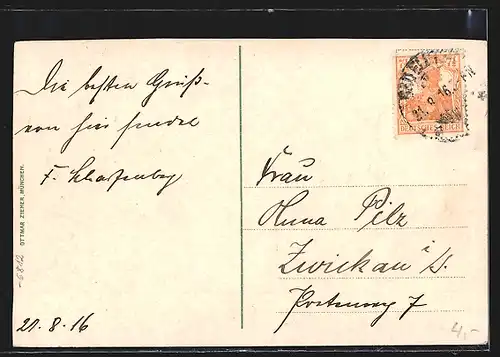 Die besten Grüße
von hier sendet
F.
21.8.16
OTTMAR ZIEHER, MÜNCHEN.
7½
21.8.16
DEUTSCHES REICH
Frau
Anna Pilz
Zwickau i/S.
7
4,-